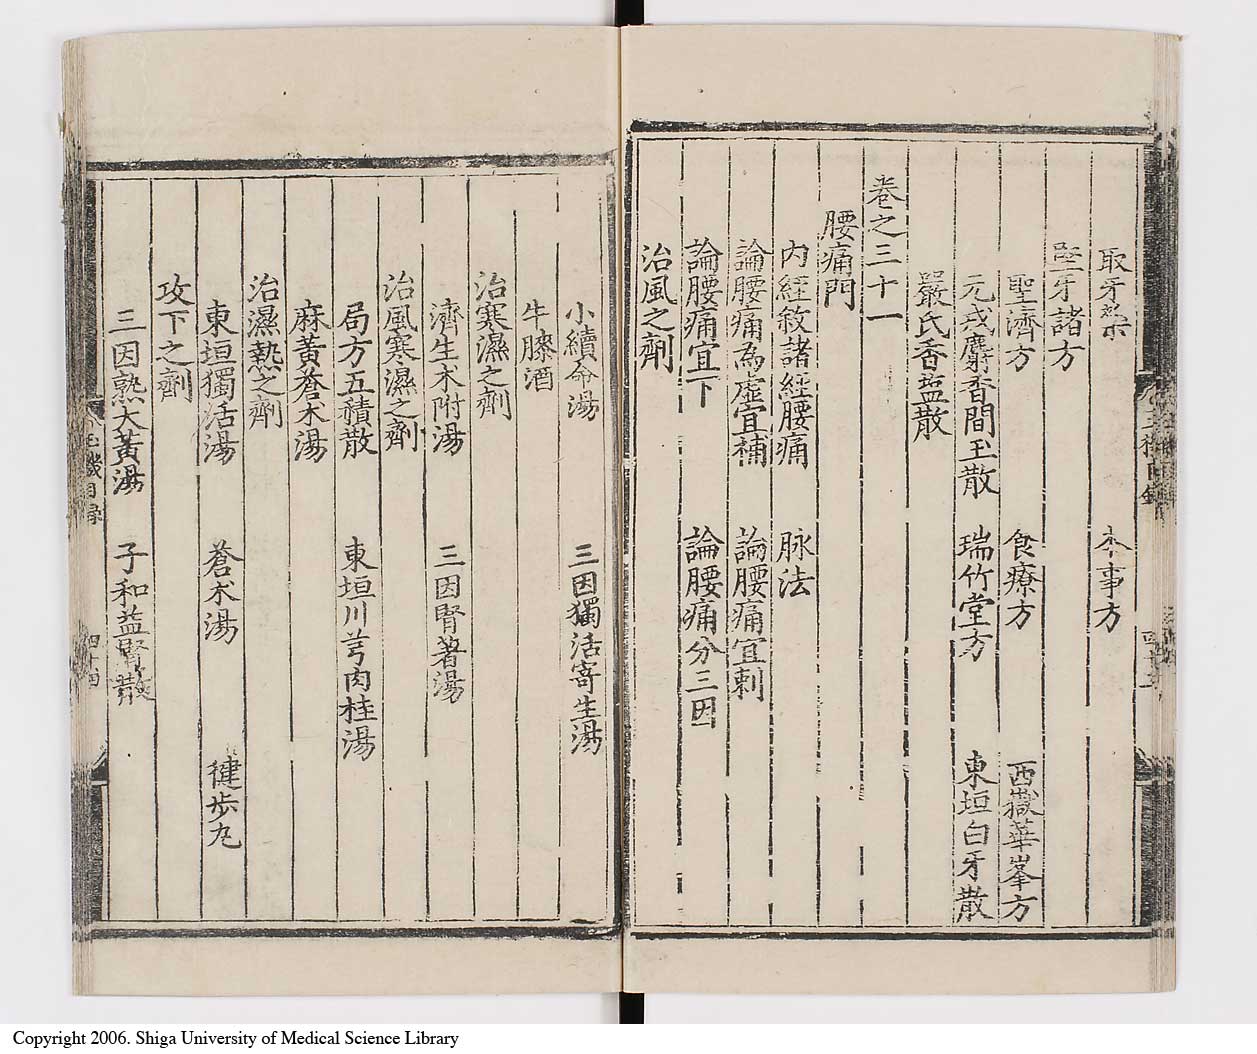 取牙藥　本事方
堅牙諸方
聖濟方　食療方　西嶽華峯方
元戎麝香間玉散　瑞竹堂方　東垣白牙散
嚴氏香鹽散
卷之三十一
腰痛門
內經敘諸經腰痛　脉法
論腰痛為虛宜補　論腰痛宜刺
論腰痛宜下　論腰痛分三因
治風之劑
小續命湯　三因獨活寄生湯
牛膝酒
治寒濕之劑
濟生术附湯　三因腎著湯
治風寒濕之劑
局方五積散　東垣川芎肉桂湯
麻黃蒼术湯
治濕熱之劑
東垣獨活湯　蒼术湯　健步丸
攻下之劑
三因熟大黃湯　子和益腎散
玉機目録　四十四
Copyright 2006. Shiga University of Medical Science Library